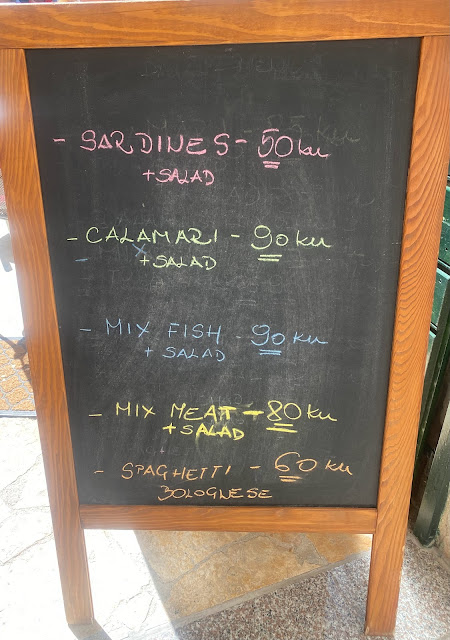 - SARDINES - 50 ku
+ SALAD
- CALAMARI - 90 ku
+ SALAD
- MIX FISH - 90 ku
+ SALAD
- MIX MEAT - 80 ku
+ SALAD
- SPAGHETTI - 60 ku
BOLOGNESE